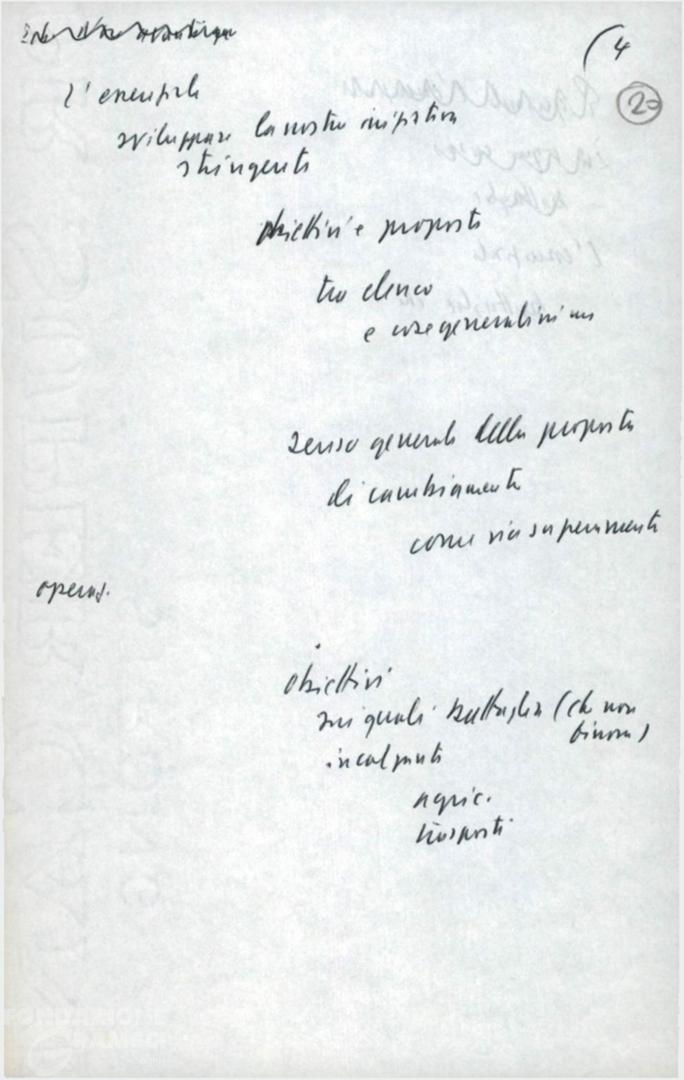 (4
20
l'essenziale
sviluppare la nostra iniziativa
stringente
obiettivi e proposte
tra elenco
e cose generalissime
senso generale della proposta
di cambiamento
come via superamento
operaj.
obiettivi
sui quali battaglia (che non
incalzante
agric.
trasporti